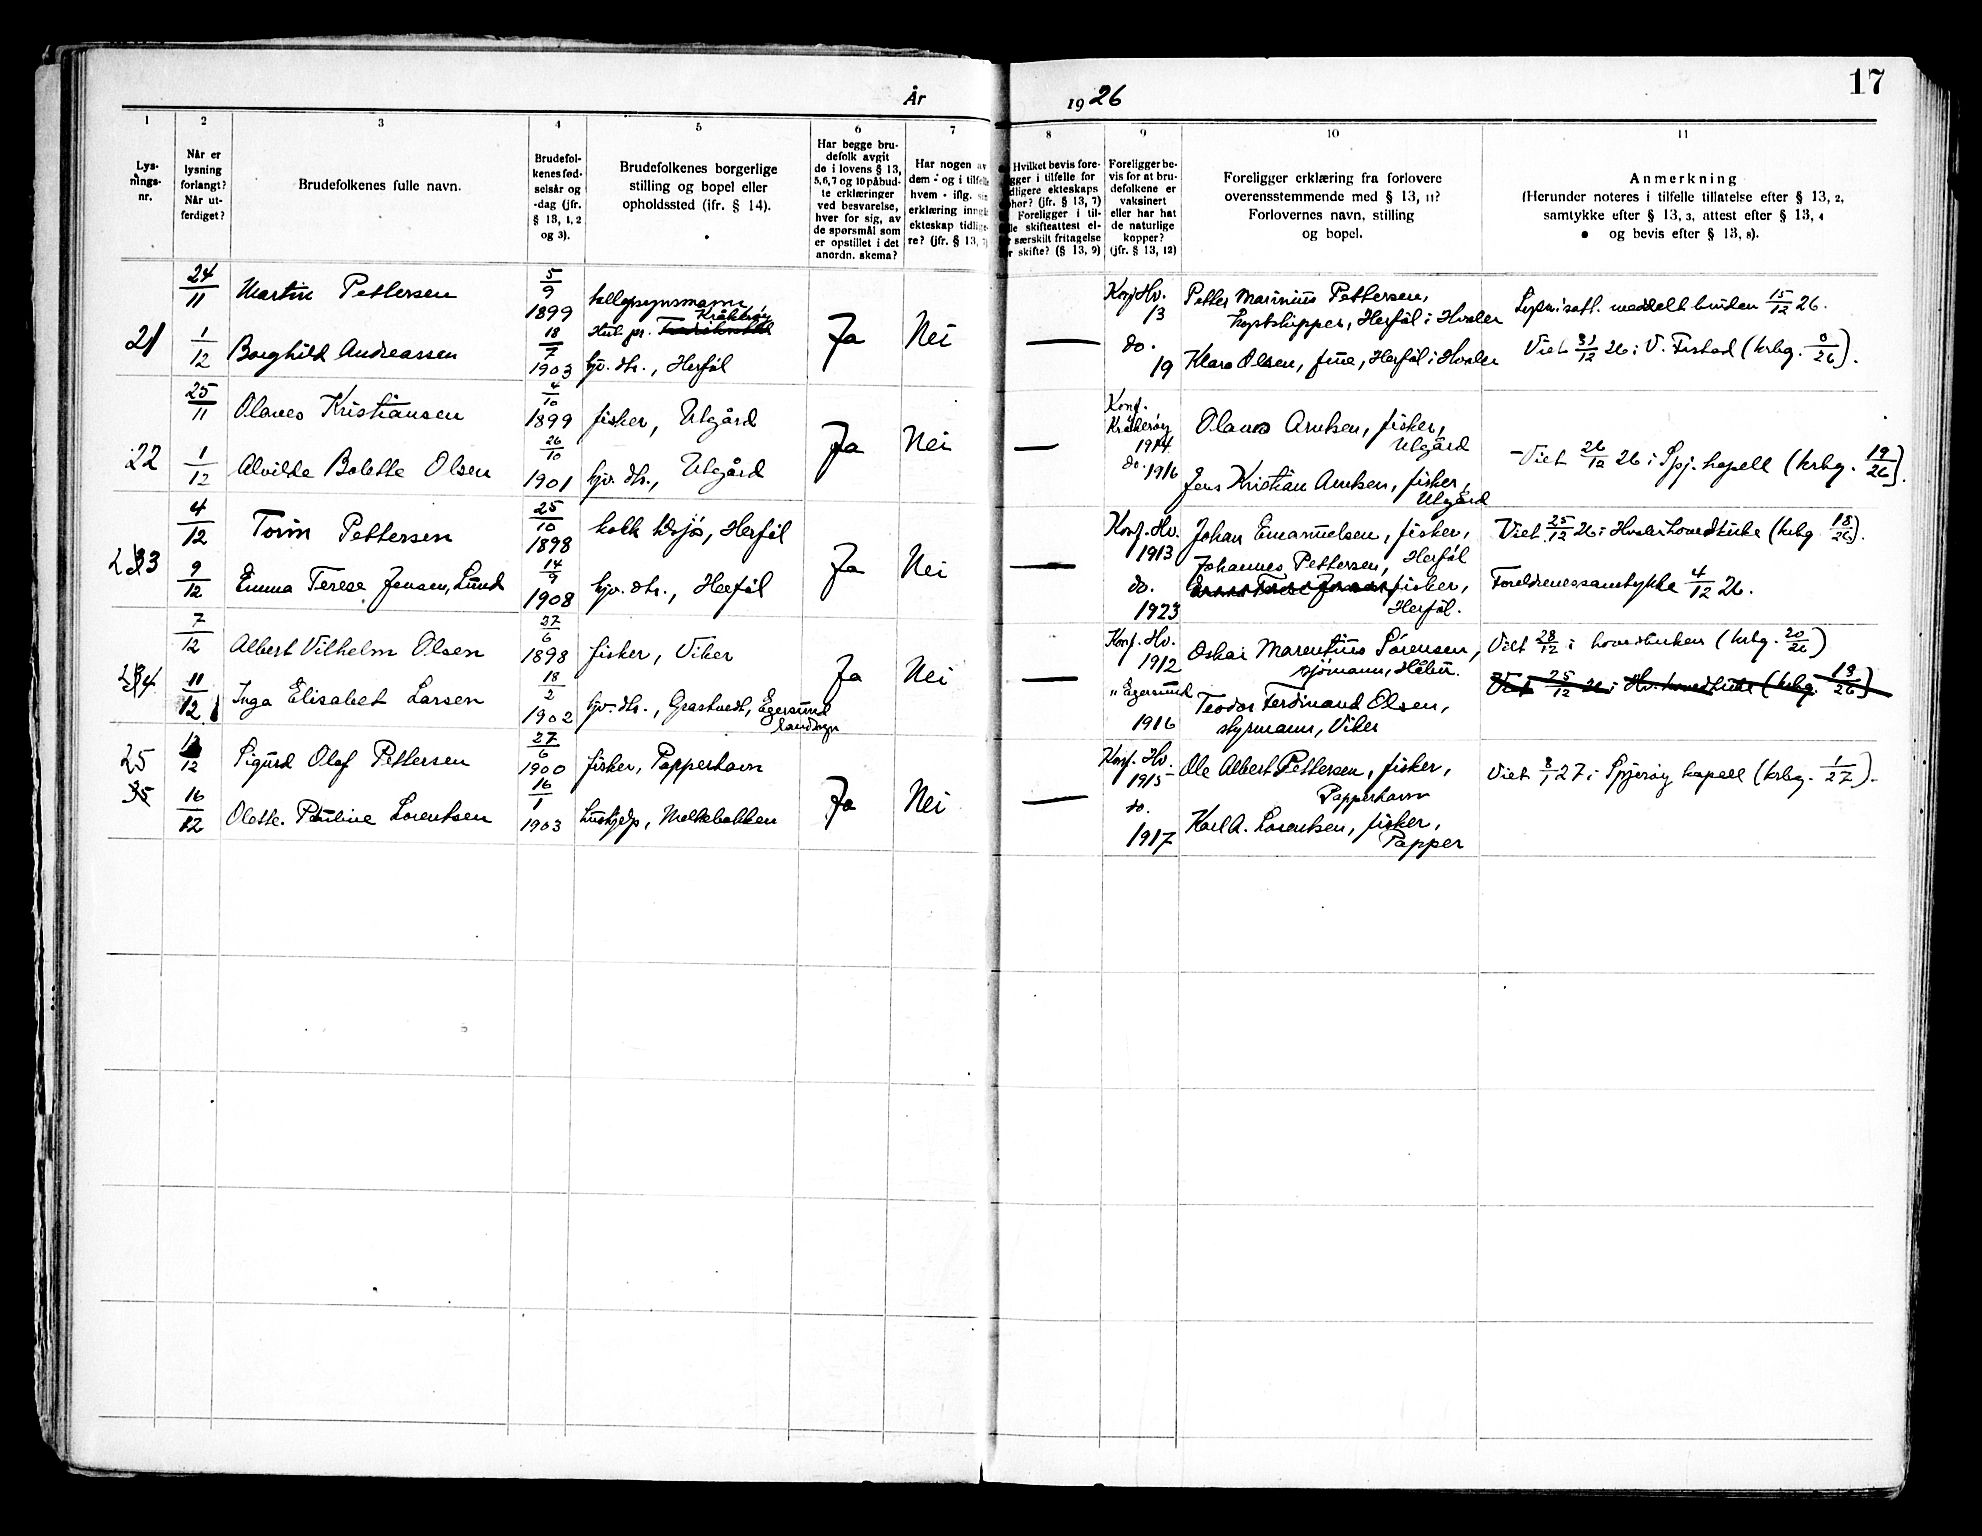 17
År
19 26
1
2
3
4
5
6
7
8
9
10
11
Lys-
nings-
nr.
Når er
lysning
forlangt?
Når ut-
ferdiget?
Brudefolkenes fulle navn.
Brudefol-
kenes fød-
selsår og
-dag (jfr.
§ 13, 1, 2
og 3).
Brudefolkenes borgerlige
stilling og bopel eller
opholdssted (ifr. § 14).
Har begge bru-
defolk avgit
de i lovens § 13,
5,6,7 og 10 påbud-
te erklæringer
ved besvarelse,
hver for sig, av
de spørsmål som
er opstillet i det
anordn. skema?
Har nogen av
dem - og i tilfelle
hvem - iflg.
erklæring inngå
ekteskap tidlige-
re? (jfr. § 13,
Hvilket bevis fore-
gger i tilfelle for
dligere ekteskaps
phør? (jfr. § 13, 7)
Foreligger i til-
lle skifteattest el-
r særskilt fritagelse
r skifte? (§ 13, 9)
Foreligger be-
vis for at bru-
defolkene er
vaksinert
eller har hat
de naturlige
kopper?
(jfr. § 13, 12)
Foreligger erklæring fra forlovere
overensstemmende med § 13, 11?
Forlovernes navn, stilling
og bopel.
Anmerkning
(Herunder noteres i tilfelle tillatelse efter § 13, 2,
samtykke efter § 13, 3, attest efter § 13, 4
og bevis efter § 13, 8).
21
24/11
Martin Pettersen
5/9 1899
Kråkerøy
1/12
Borghild Andreassen
18/7 1903
hjv. dtr., Herføl
Ja
Nei
—
Konf. Hv.
13
do.
19
Petter Marinius Pettersen,
Herføl i Hvaler
Klara Olsen, frue, Herføl i Hvaler
meddelt bruden 15/12 26.
Viet 31/12 26 i V. Frstad (krbg. 0/26).
22
25/11
Olaves Kristiansen
4/10 1899
fisker, Utgård
1/12
Alvilde Bolette Olsen
26/10 1901
hjv. dtr., Utgård
Ja
Nei
—
Konf.
Kråkerøy
1914
do. 1916
Olaus Arntsen, fisker,
Utgård
Jens Kristian Arntsen, fisker,
Utgård
Viet 26/12 26 i Spj. kapell (krbg. 19/26).
23
4/12
Torin Pettersen
25/10 1898
kokk tilsjøs, Herføl
9/12
Emma Terese Jensen, Lund
14/9 1908
hjv. dtr., Herføl
Ja
Nei
—
Konf. Hv.
1913
do.
1923
Johan Emanuelsen, fisker,
Herføl
Johannes Pettersen,
fisker,
Herføl.
Viet 25/12 26 i Hvaler hovedkirke (krbg. 18/26).
Foreldrenes samtykke 4/12 26.
24
7/12
Albert Vilhelm Olsen
27/6 1898
fisker, Viker
11/12
Inga Elisabet Larsen
18/2 1902
hjv. dtr., Grastvedt, Egersund
landsogn
Ja
Nei
—
Konf. Hv.
1912
" Egersund
1916
Oskar Marentius Sørensen,
sjømann, Håbu.
Teodor Ferdinand Olsen,
styrmann, Viker
Viet 28/12 i hovedkirken (krbg. 20/26)
Viet 25/12 26 i Hv. hovedkirke (krbg. 19/26)
25
/12
Sigurd Olaf Pettersen
27/6 1900
fisker, Papperhavn
16/12
Olette Pauline Lorentsen
16/1 1903
hushjelp, Mølkebakken
Ja
Nei
—
Konf. Hv.
1915
do.
1917
Ole Albert Pettersen, fisker,
Papperhavn
Karl A. Lorentsen, fisker,
Papper
Viet 8/1 27 i Spjærøy kapell (krbg. 1/27).